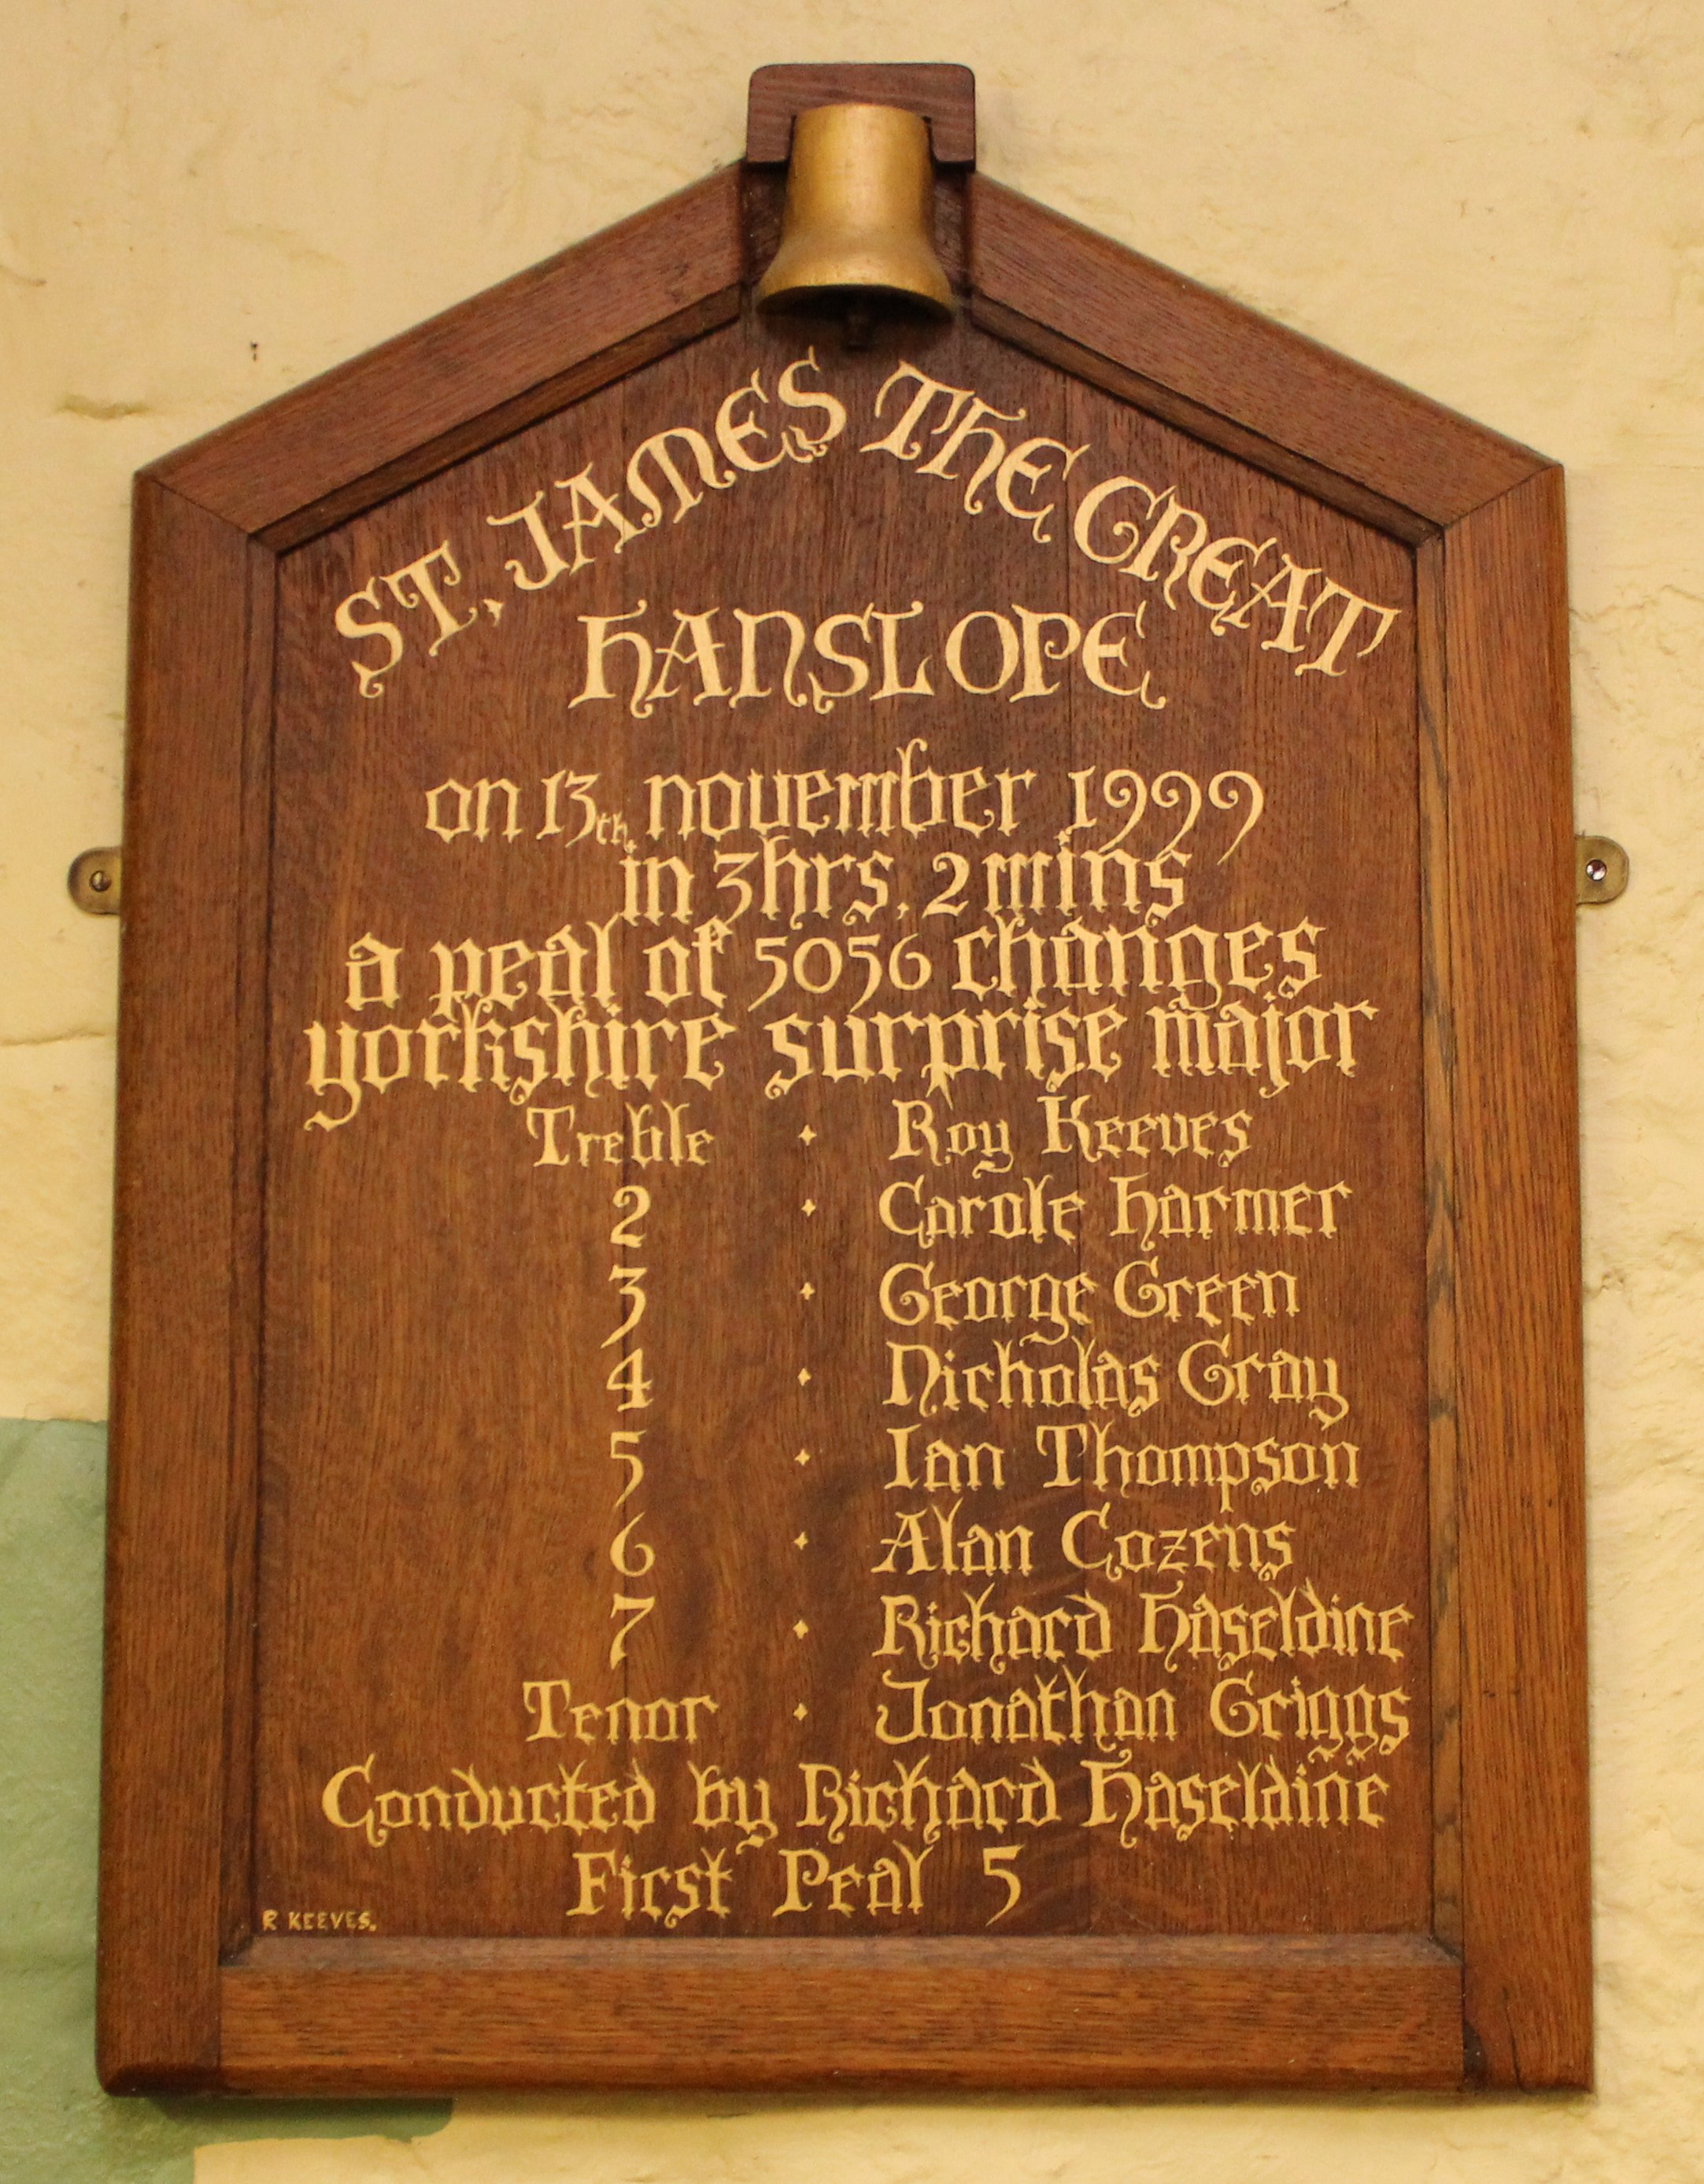 ST. JAMES THE GREAT
HANSLOPE
on 13th november 1999
in 3hrs. 2 mins
a peal of 5056 changes
yorkshire surprise major
Treble · Roy Keeves
2 · Carole Harmer
3 · George Green
4 · Nicholas Gray
5 · Ian Thompson
6 · Alan Cozens
7 · Richard Haseldine
Tenor · Jonathan Griggs
Conducted by Richard Haseldine
First Peal 5
R KEEVES.